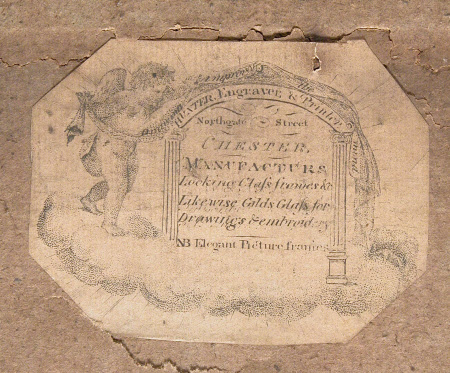 Engraver & Printer
Northgate Street
CHESTER,
MANUFACTURS
Looking Glass frames &c
Likewise Gilds Glass for
Drawings & embroidery
NB Elegant Picture frames